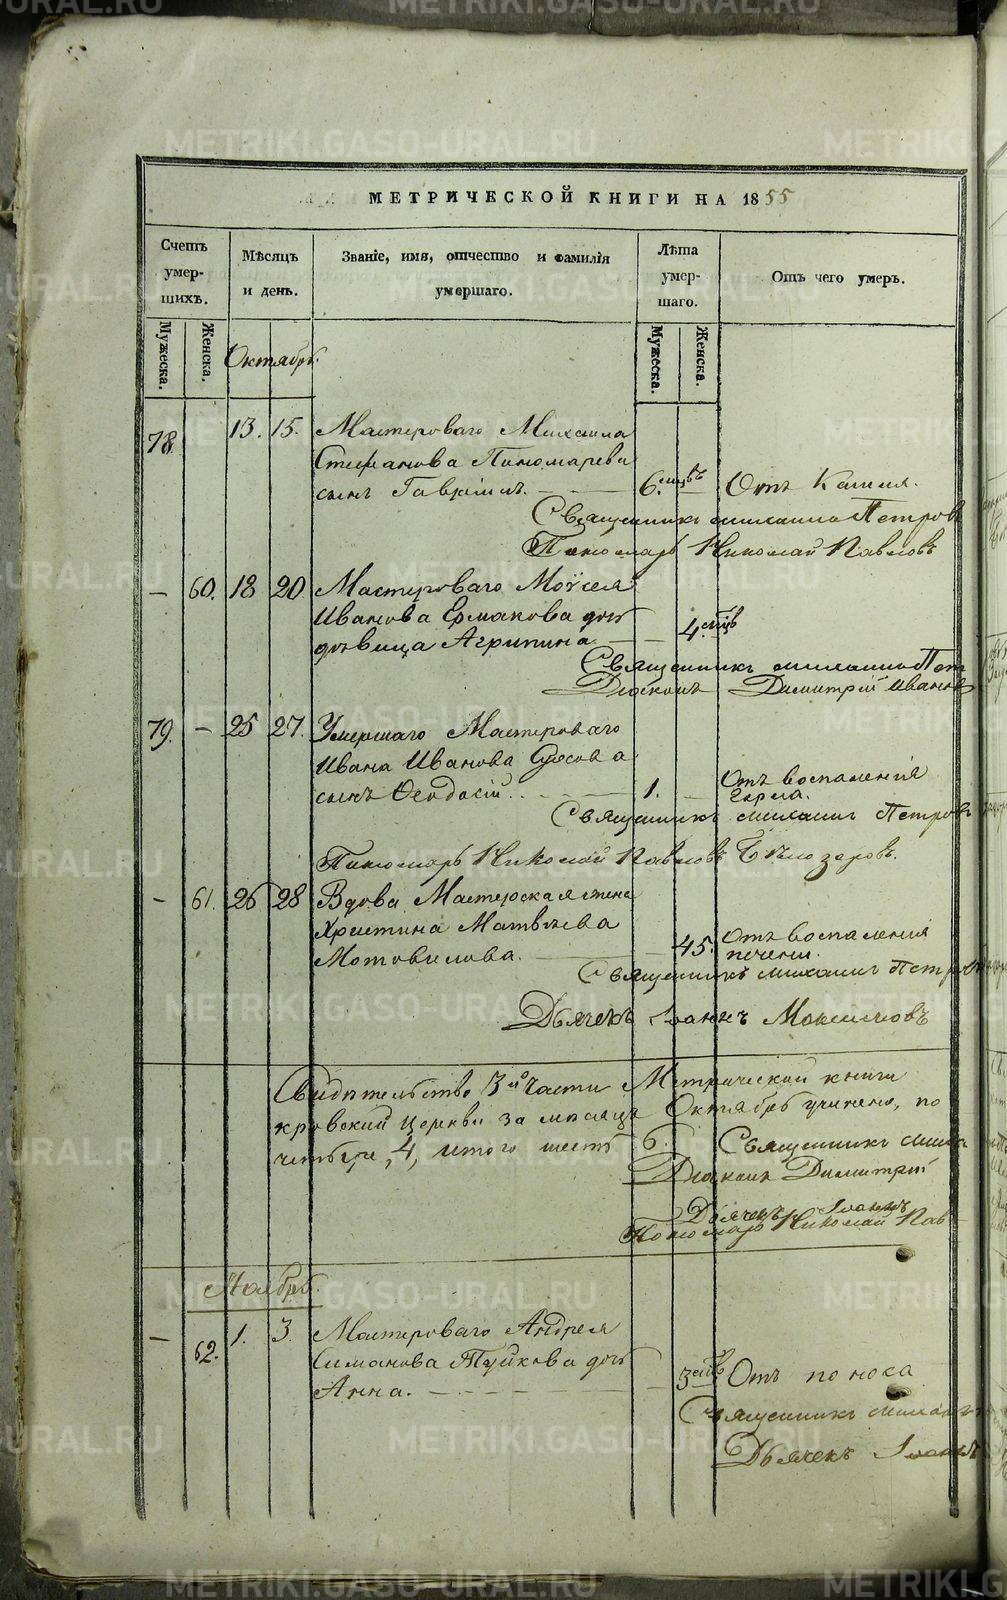 МЕТРИЧЕСКОЙ КНИГИ НА 1855
Счетъ умершихъ.
Мѣсяцъ и день.
Званіе, имя, отчество и фамилія умершаго.
Лѣта умершаго.
Отъ чего умеръ.
Мужеска.
Женска.
Мужеска.
Женска.
Октябрь.
78. 13. 15. Мастероваго Михаила
Стефанова Пономарева
сынъ Гавріилъ. 6. мцвъ Отъ Кашля.
Священникъ Михаилъ Петровъ
Пономарь Николай Павловъ
— 60. 18 20 Мастероваго Моѵсея
Иванова Ермакова дочь
дѣвица Агрипина 4. мцв
Священникъ Михаилъ Пет
Діаконъ Димитрій Иванов
79. — 25 27. Умершаго Мастероваго
Ивана Иванова
сынъ Ѳеодосій. 1. Отъ воспаленія
горла.
Священникъ Михаилъ Петров
Пономарь Николай Павловъ Бѣлозеровъ.
— 61. 26 28 Вдова Мастерская жена
Христина Матвѣева
Мотовилова. 45. Отъ воспаленія
печени.
Священникъ Михаилъ Петров
Дьячекъ Іоаннъ Максимовъ
Свидѣтельство 3й части Метрической книги
кровской церкви за мѣсяцъ Октябрь учинено, по
4, итого шесть 6. Священникъ Миха
Діаконъ Димитрій
Дьячекъ Іоаннъ
Пономарь Николай Пав
Ноябрь.
— 62. 1. 3. Мастероваго Андрея
Симанова дочь
Анна. 3 мцв Отъ поноса
Священникъ Михаил
Дьячекъ Іоанн
METRIKI.GASO-URAL.RU